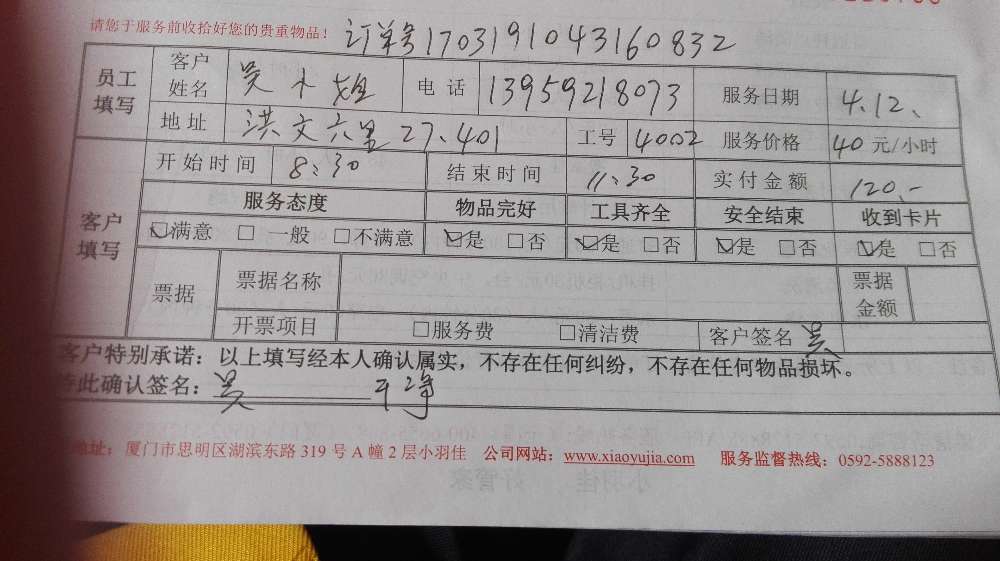 请您于服务前收拾好您的贵重物品! 订单号1703191043160832
员工填写 客户姓名 吴小姐 电话 13959218073 服务日期 4.12、
地址 洪文六里27、401 工号 4002 服务价格 40 元/小时
开始时间 8:30 结束时间 11:30 实付金额 120.-
客户填写 服务态度 物品完好 工具齐全 安全结束 收到卡片
☑满意 □ 一般 □不满意 ☑是 □否 ☑是 □否 ☑是 □否 ☑是 □否
票据 票据名称 票据金额
开票项目 □服务费 □清洁费 客户签名 吴
客户特别承诺：以上填写经本人确认属实，不存在任何纠纷，不存在任何物品损坏。
此确认签名：吴
地址：厦门市思明区湖滨东路 319 号 A 幢 2 层小羽佳 公司网站：www.xiaoyujia.com 服务监督热线：0592-5888123